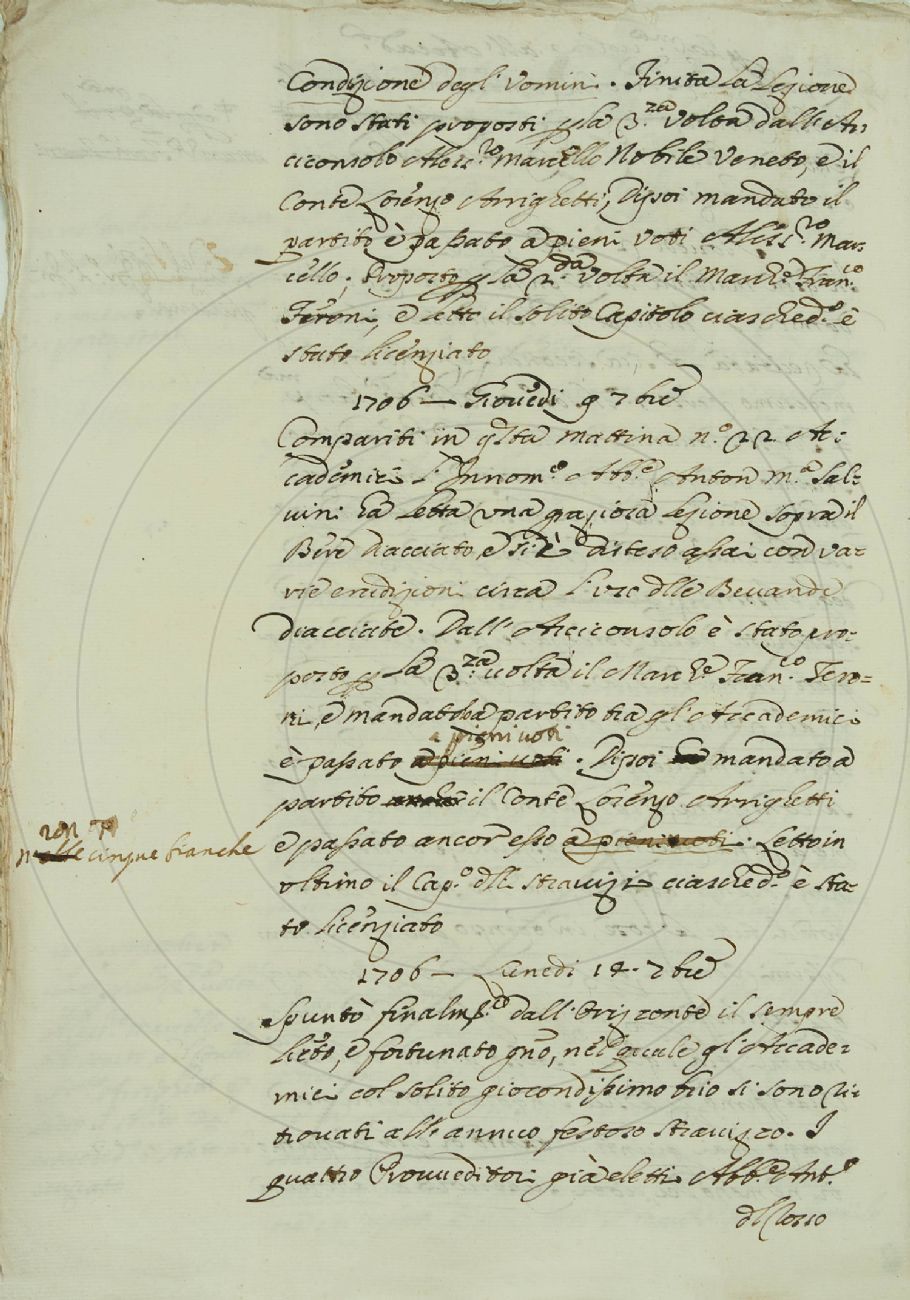 Condizione degl' Vomini. Finita La Lezione
sono stati proposti p la 3.za volta dall' Ar=
ciconsolo Aless.ro Marcello Nobile Veneto, e il
Conte Lorenzo Arrighetti, Dipoi mandato il
partito è passato a pieni voti Aless.ro Mar=
cello; Proposto p la 2.da volta il March.e Fran.co
Feroni, e letto il solito Capitolo ciasched.o è
stato licenziato
1706 — Giovedi 9 7bre
Compariti in q.sta mattina n.o 22 Ac=
cademici l'Innom.o Abb.e Anton M.a Sal=
vini ha Letta una graziosa Lezione sopra il
Bere diacciato, e si è disteso assai con va=
rie erudizioni circa l'uso dlle Bevande
diacciate. Dall' Arciconsolo è stato pro=
posto p La 3.za volta il March.e Fran.co Fero=
ni, e mandato a partito tra gl' Accademici
a pieni voti
è passato a pieni voti. Dipoi mandato a
partito il Conte Lorenzo Arrighetti
è passato ancor esso a pieni voti. Letto in
non
n cinque bianche
ultimo il Cap.o dllo stravizi ciasched.o è sta=
to licenziato
1706 — Lunedi 7bre
Spuntò finalm.te dall' Orizzonte il sempre
lieto, e fortunato gno, nel quale gl' Accade=
mici col solito giocondissimo brio si sono ri=
trovati all' annuo festoso stravizzo. I
quattro Provveditori già eletti Abb.e Ant.o
dl Rosso